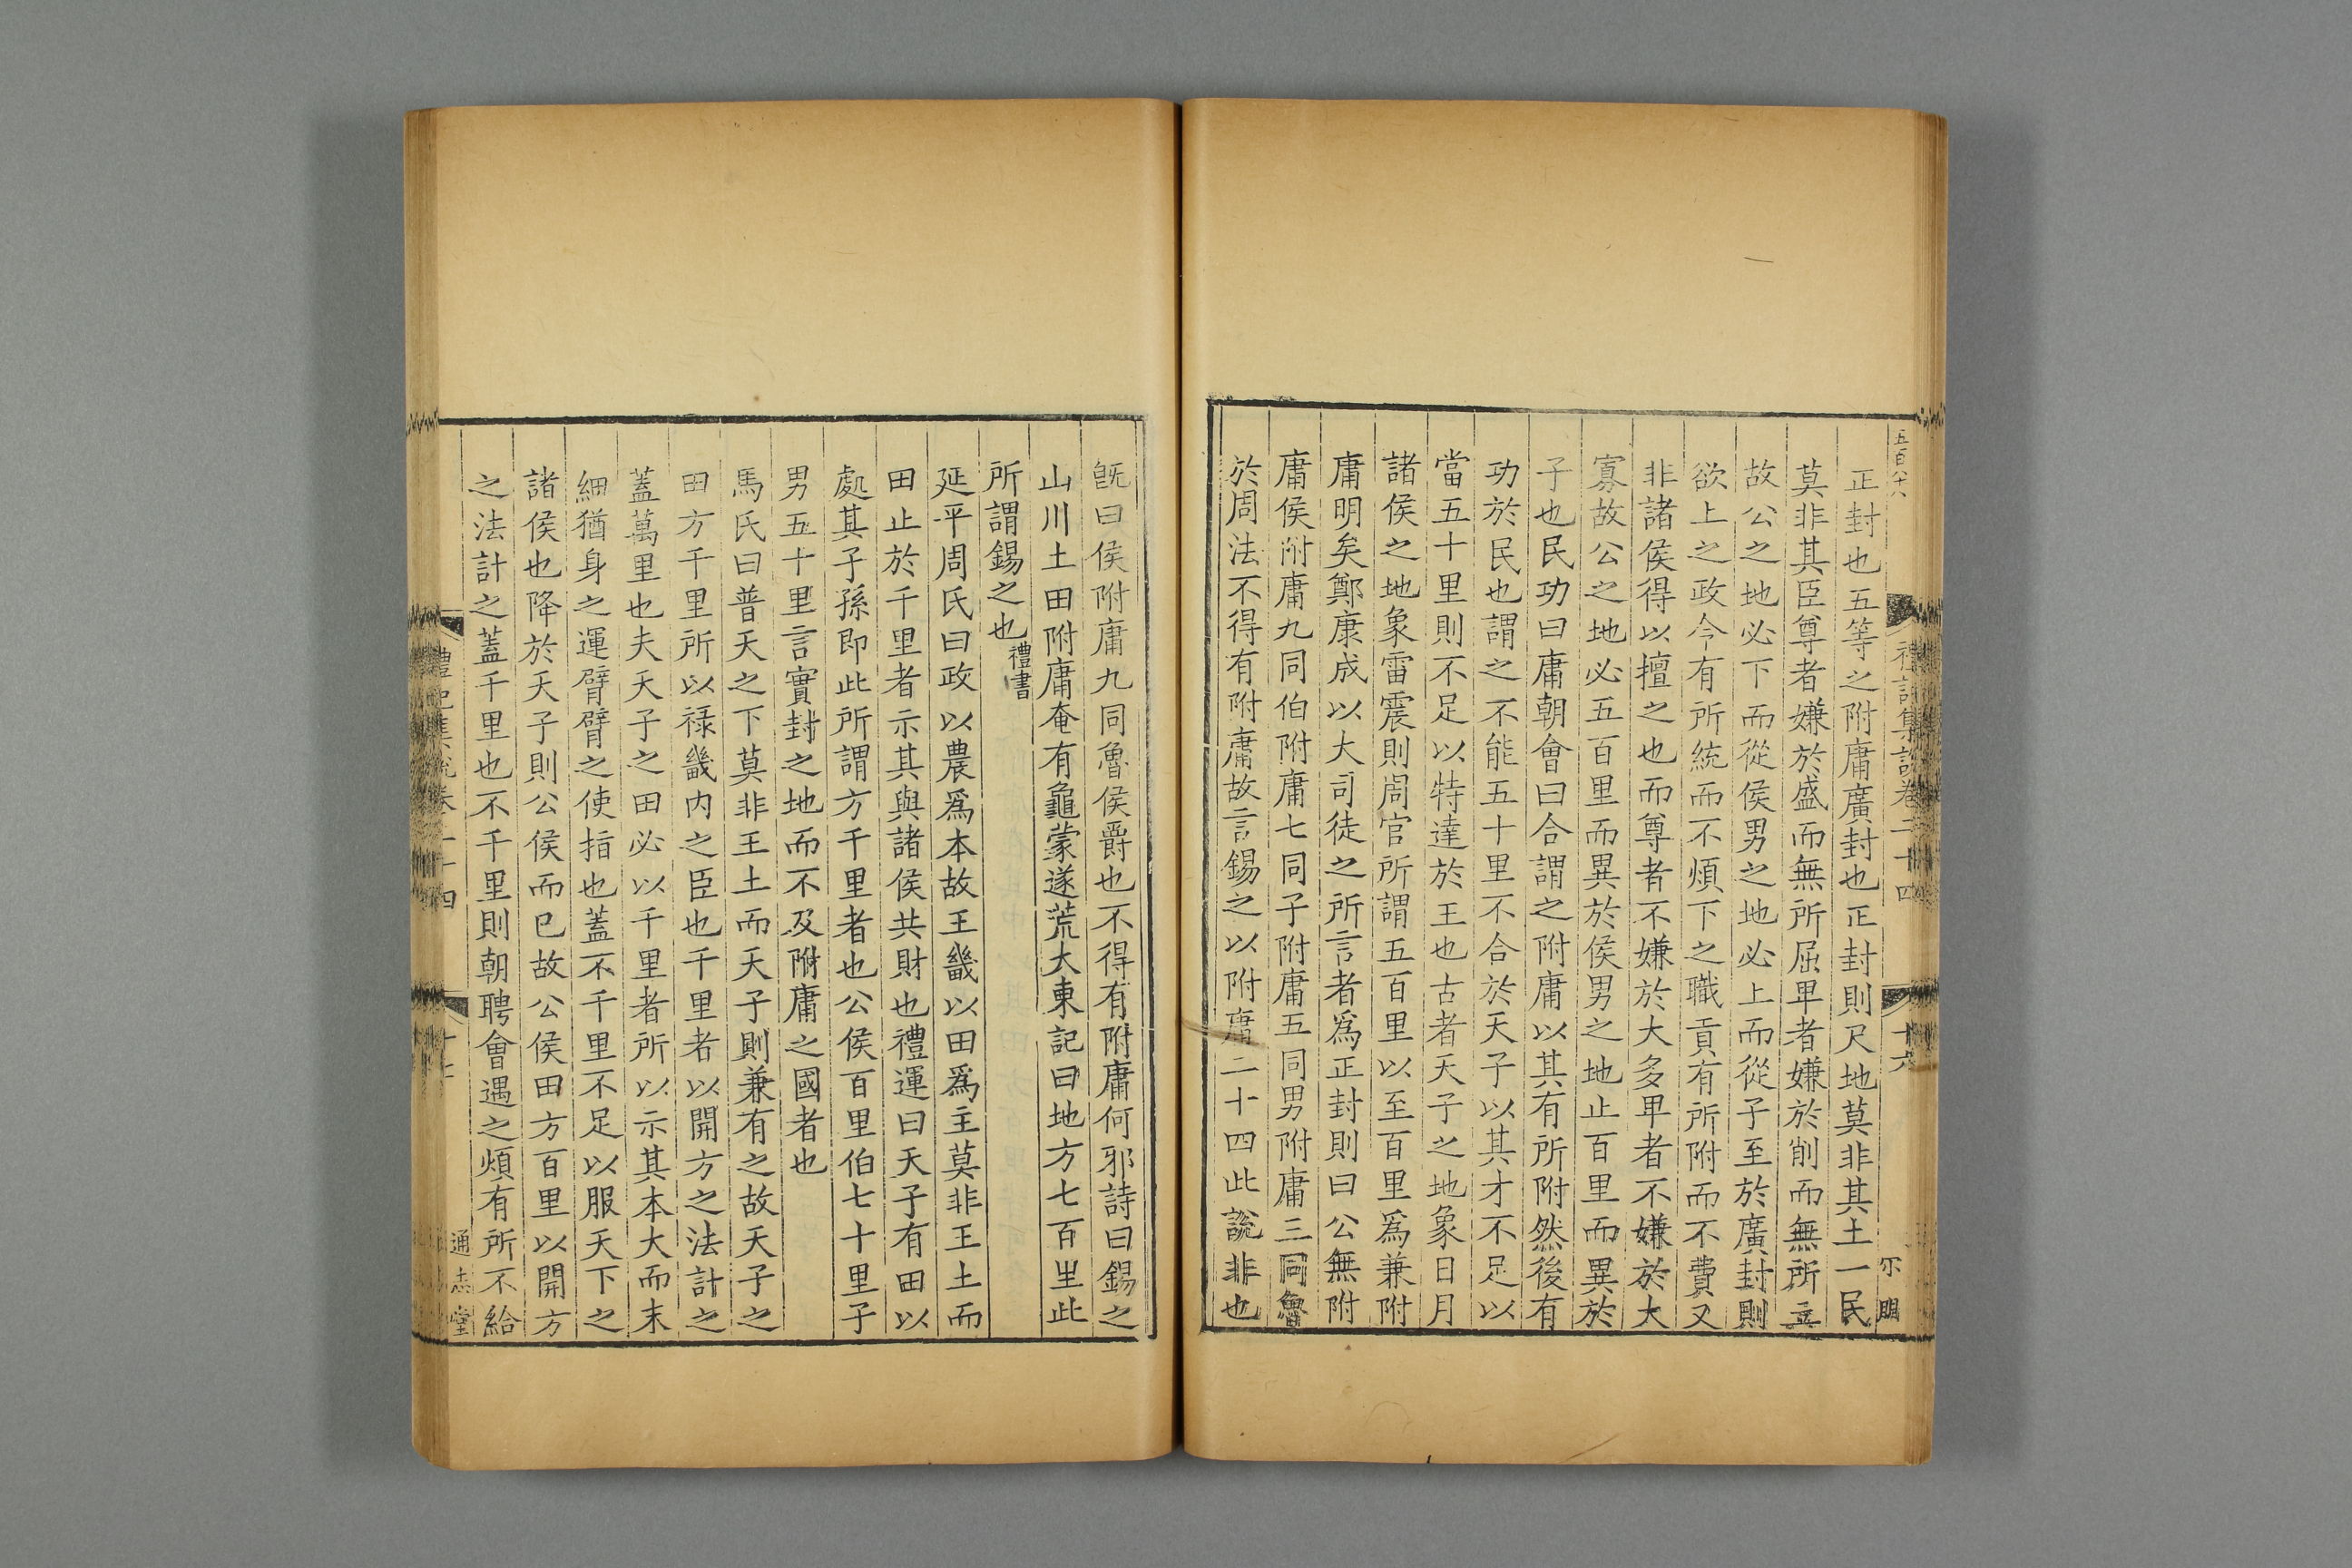 五百八十八
禮記集說卷二十四
十六
尔明
正封也五等之附庸廣封也正封則尺地莫非其土一民
莫非其臣尊者嫌於盛而無所屈卑者嫌於削而無所立
故公之地必下而從侯男之地必上而從子至於廣封則
欲上之政令有所統而不煩下之職貢有所附而不費又
非諸侯得以擅之也而尊者不嫌於大多卑者不嫌於大
寡故公之地必五百里而異於侯男之地止百里而異於
子也民功曰庸朝會曰合謂之附庸以其有所附然後有
功於民也謂之不能五十里不合於天子以其才不足以
當五十里則不足以特達於王也古者天子之地象日月
諸侯之地象雷震則周官所謂五百里以至百里爲兼附
庸明矣鄭康成以大司徒之所言者爲正封則曰公無附
庸侯附庸九同伯附庸七同子附庸五同男附庸三同魯
於周法不得有附庸故言錫之以附庸二十四此說非也
旣曰侯附庸九同魯侯爵也不得有附庸何邪詩曰錫之
山川土田附庸奄有龜蒙遂荒大東記曰地方七百里此
所謂錫之也禮書
延平周氏曰政以農爲本故王畿以田爲主莫非王土而
田止於千里者示其與諸侯共財也禮運曰天子有田以
處其子孫即此所謂方千里者也公侯百里伯七十里子
男五十里言實封之地而不及附庸之國者也
馬氏曰普天之下莫非王土而天子則兼有之故天子之
田方千里所以祿畿內之臣也千里者以開方之法計之
蓋萬里也夫天子之田必以千里者所以示其本大而末
細猶身之運臂臂之使指也蓋不千里不足以服天下之
諸侯也降於天子則公侯而已故公侯田方百里以開方
之法計之蓋千里也不千里則朝聘會遇之煩有所不給
禮記集說卷二十四
十七
通志堂